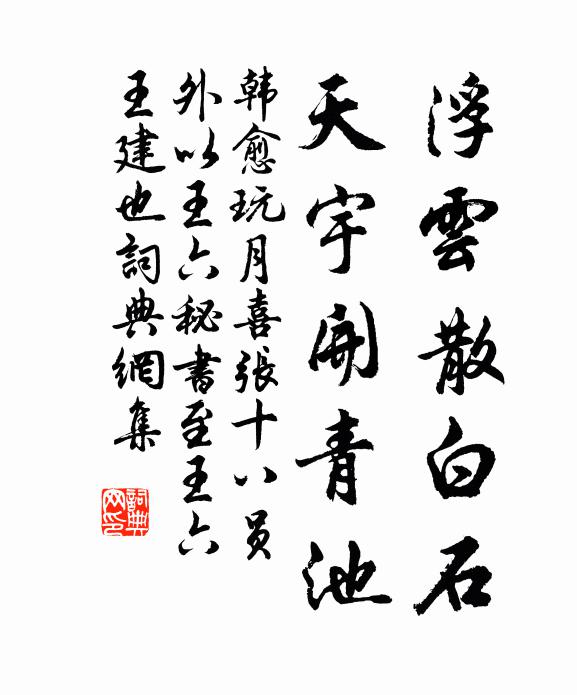 浮雲散白石
天宇開青池
韩愈玩月喜張十八员
外以王六秘書至王六
王建也詞典網集
詞典
网印